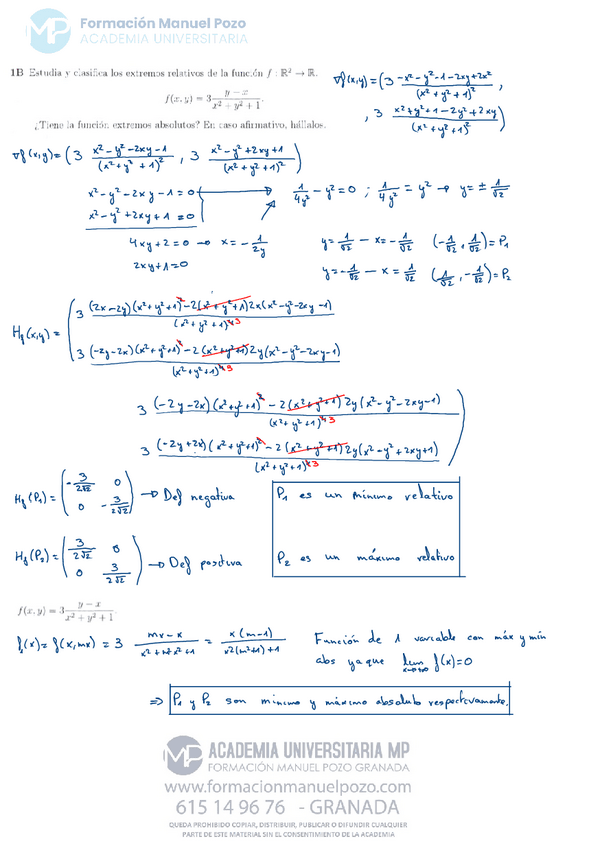 MP Formación Manuel Pozo
ACADEMIA UNIVERSITARIA
1B Estudia y clasifica los extremos relativos de la función f : ℝ² → ℝ.
f(x, y) = 3 (y − x)/(x² + y² + 1).
¿Tiene la función extremos absolutos? En caso afirmativo, hállalos.
∇f(x,y) = (3 (-x²-y²-1-2xy+2x²)/(x²+y²+1)² ,
, 3 (x²+y²+1-2y²+2xy)/(x²+y²+1)²)
∇f(x,y) = (3 (x²-y²-2xy-1)/(x²+y²+1)² , 3 (x²-y²+2xy+1)/(x²+y²+1)²)
x²-y²-2xy-1=0
x²-y²+2xy+1=0
4xy+2=0 → x=-1/2y
2xy+1=0
1/4y² - y² = 0 ; 1/4y² = y² → y = ± 1/√2
y=1/√2 - x=-1/√2 (-1/√2, 1/√2)=P₁
y=-1/√2 - x=1/√2 (1/√2, -1/√2)=P₂
H_f(x,y) = (3 ((2x-2y)(x²+y²+1)²-2(x²+y²+1)2x(x²-y²-2xy-1))/(x²+y²+1)⁴ ³
3 ((-2y-2x)(x²+y²+1)²-2(x²+y²+1)2y(x²-y²-2xy-1))/(x²+y²+1)⁴ ³
3 ((-2y-2x)(x²+y²+1)²-2(x²+y²+1)2y(x²-y²-2xy-1))/(x²+y²+1)⁴ ³
3 ((-2y+2x)(x²+y²+1)²-2(x²+y²+1)2y(x²-y²+2xy+1))/(x²+y²+1)⁴ ³)
H_f(P₁) = (-3/2√2 0
0 -3/2√2) → Def negativa
P₁ es un mínimo relativo
H_f(P₂) = (3/2√2 0
0 3/2√2) → Def positiva
P₂ es un máximo relativo
f(x, y) = 3 (y − x)/(x² + y² + 1).
f(x) = f(x,mx) = 3 (mx-x)/(x²+m²x²+1) = x(m-1)/(x²(m²+1)+1)
Función de 1 variable con máx y mín
abs ya que lim f(x)=0
⇒ P₁ y P₂ son mínimo y máximo absoluto respectivamente.
MP ACADEMIA UNIVERSITARIA MP
FORMACIÓN MANUEL POZO GRANADA
www.formacionmanuelpozo.com
615 14 96 76 - GRANADA
QUEDA PROHIBIDO COPIAR, DISTRIBUIR, PUBLICAR O DIFUNDIR CUALQUIER
PARTE DE ESTE MATERIAL SIN EL CONSENTIMIENTO DE LA ACADEMIA